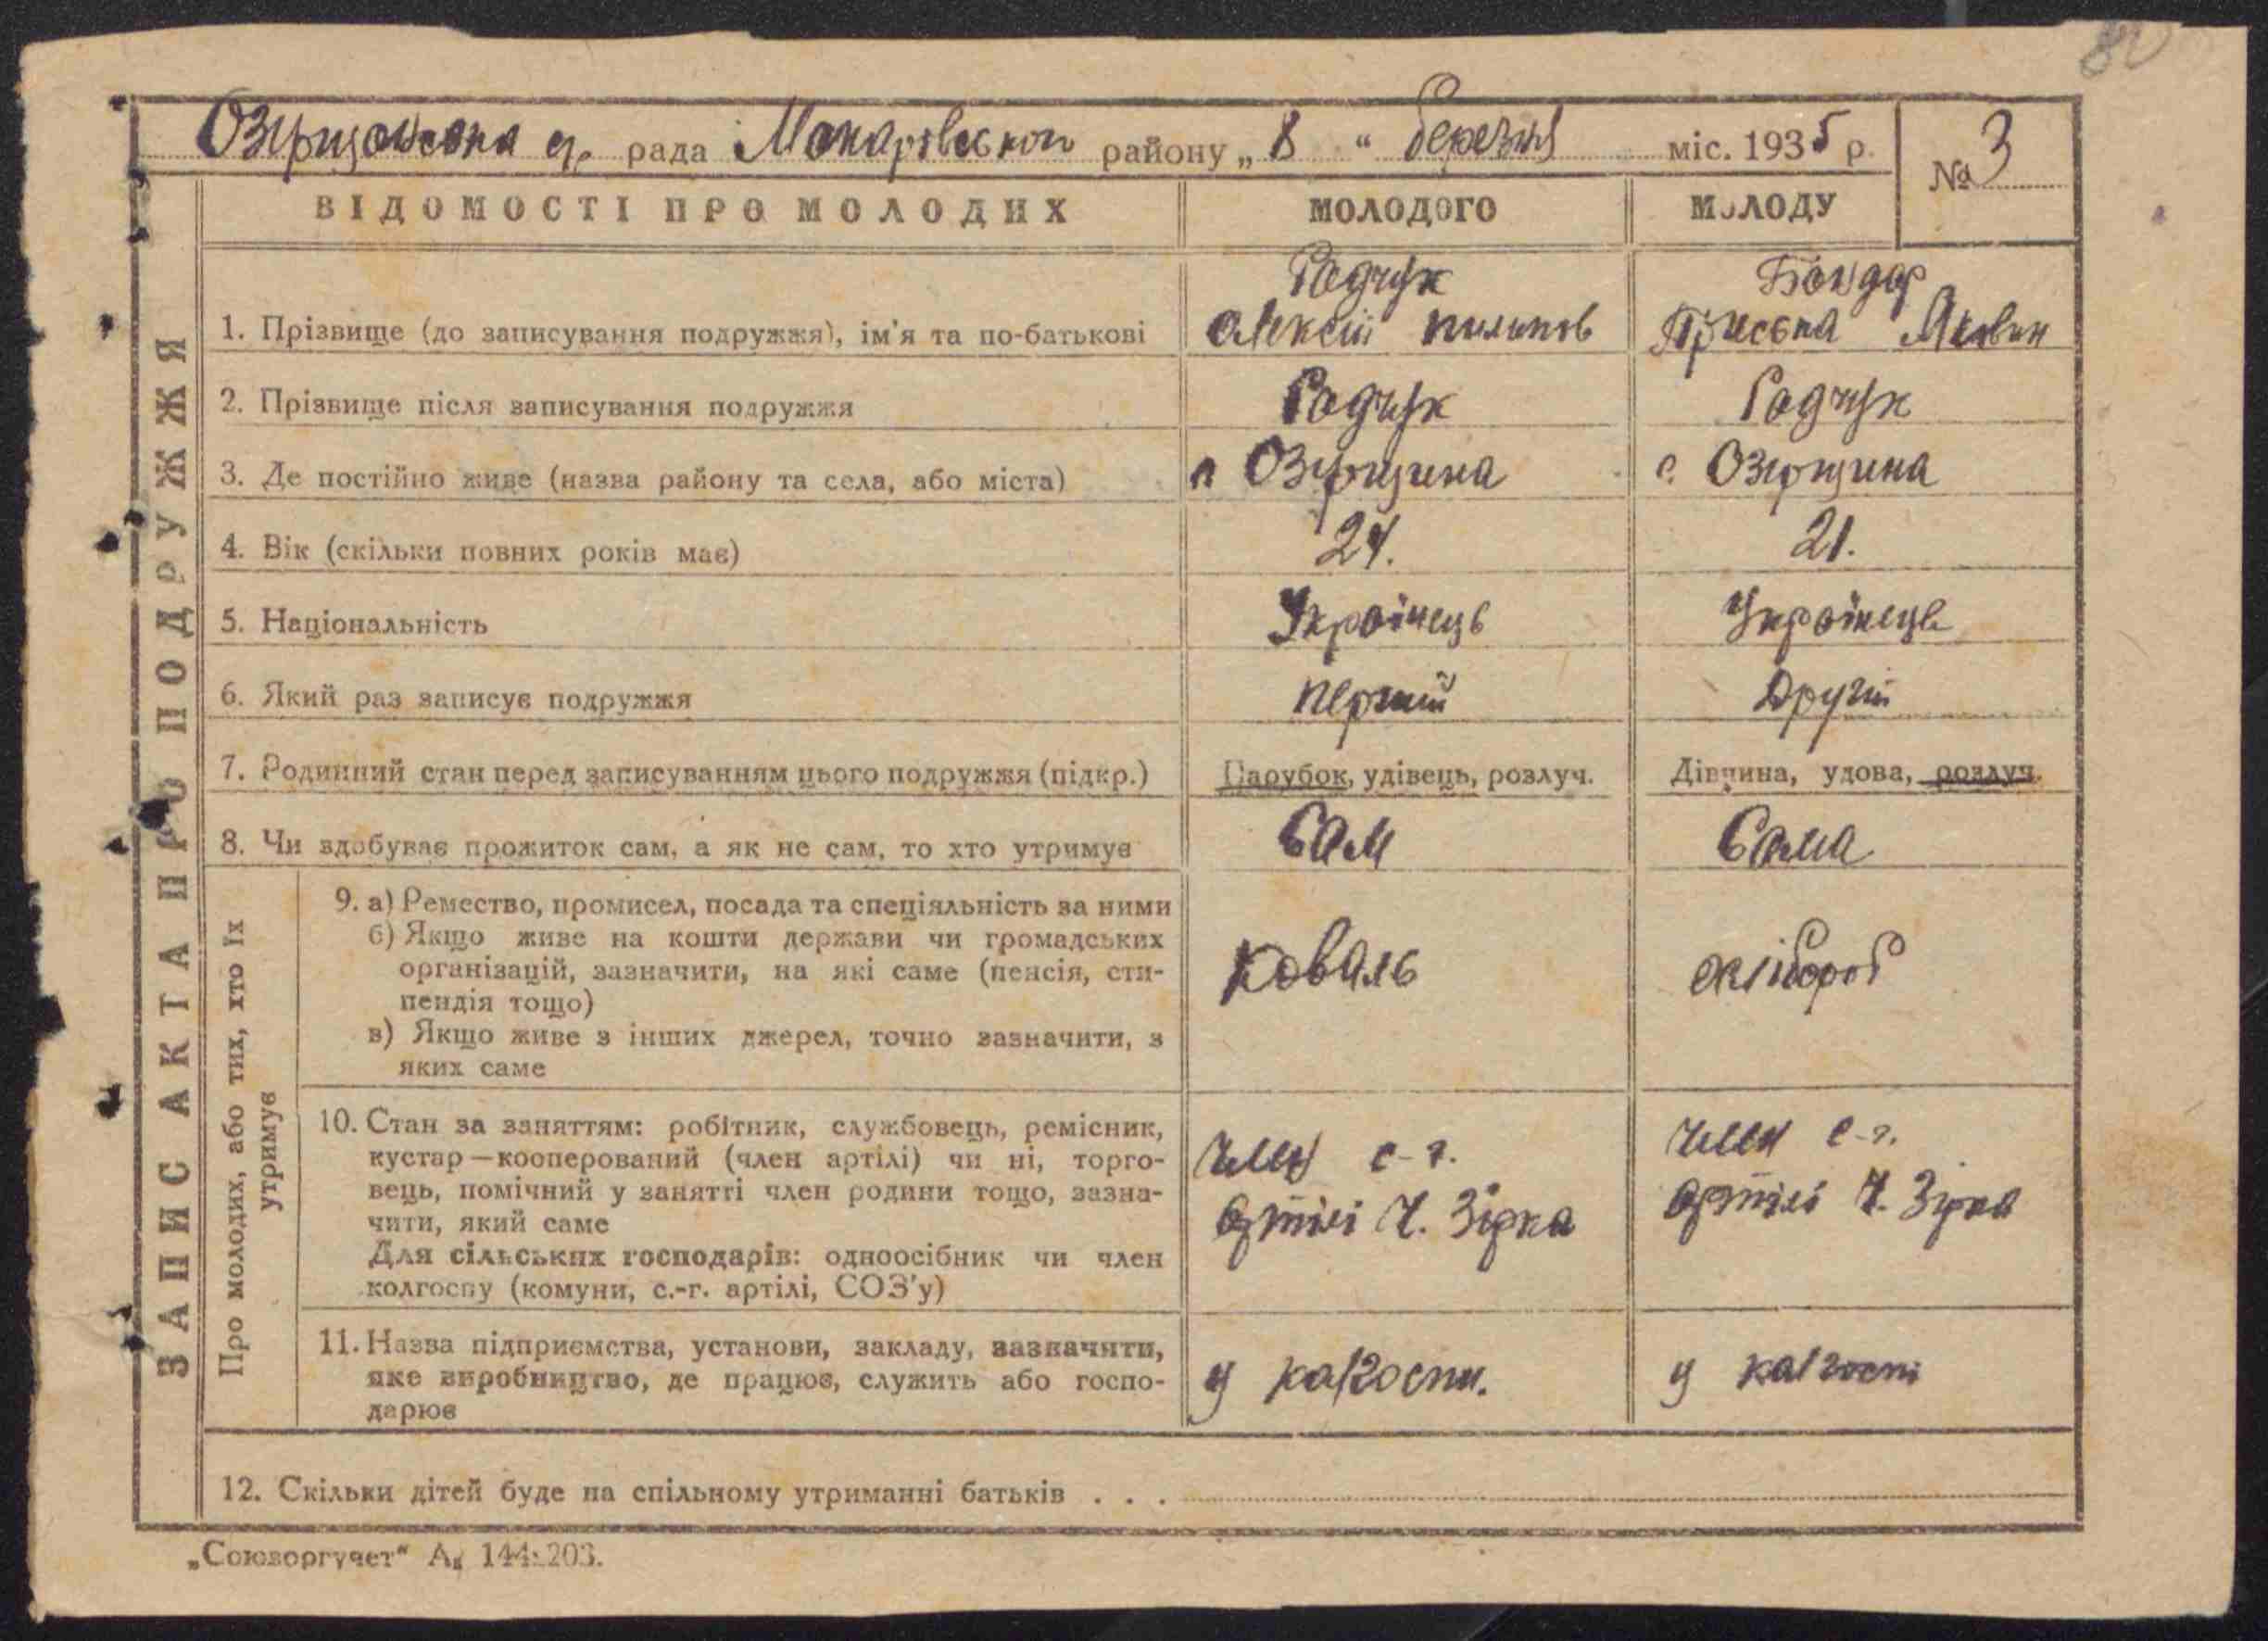 80
Озирщанська с/р. рада Макарівського району „8“ березня міс. 1935 р.
№ 3
ВІДОМОСТІ ПРО МОЛОДИХ
МОЛОДОГО
МОЛОДУ
ЗАПИС АКТА ПРО ПОДРУЖЖЯ
1. Прізвище (до записування подружжя), ім'я та по-батькові
Радчук
Олексій Пилипов
Бондар
Пріська Яковин
2. Прізвище після записування подружжя
Радчук
Радчук
3. Де постійно живе (назва району та села, або міста)
с Озирщина
с. Озирщина
4. Вік (скільки повних років має)
24.
21.
5. Національність
Українець
Українець
6. Який раз записує подружжя
перший
другий
7. Родинний стан перед записуванням цього подружжя (підкр.)
Парубок, удівець, розлуч.
Дівчина, удова, розлуч.
8. Чи здобуває прожиток сам, а як не сам, то хто утримує
Сам
Сама
Про молодих, або тих, хто їх
утримує
9. а) Ремество, промисел, посада та спеціяльність за ними
б) Якщо живе на кошти держави чи громадських
організацій, зазначити, на які саме (пенсія, сти-
пендія тощо)
в) Якщо живе з інших джерел, точно зазначити, з
яких саме
Коваль
хлібороб
10. Стан за заняттям: робітник, службовець, ремісник,
кустар—кооперований (член артілі) чи ні, торго-
вець, помічний у занятті член родини тощо, зазна-
чити, який саме
Для сільських господарів: одноосібник чи член
колгоспу (комуни, с.-г. артілі, СОЗ'у)
член с-г.
артілі Ч. Зірка
член с-г.
артілі Ч. Зірка
11. Назва підприємства, установи, закладу, зазначити,
яке виробництво, де працює, служить або госпо-
дарює
у калгоспи.
у калгоспі
12. Скільки дітей буде на спільному утриманні батьків . . .
„Союзоргучет“ 144 203.